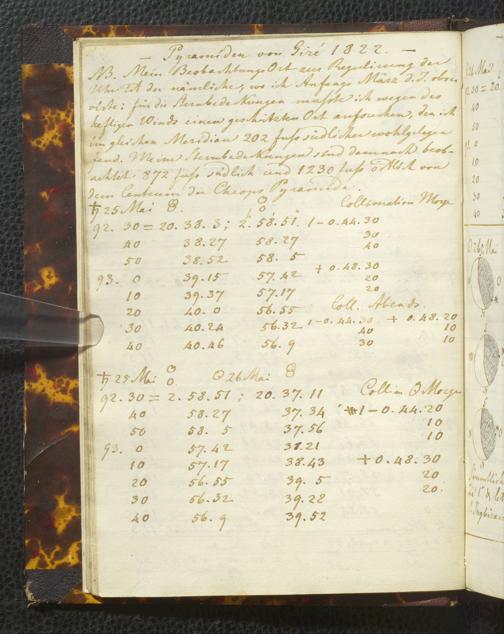 — Pyramiden von Gizé 1822. —
NB. Mein Beobachtungs Ort zur Regulierung der
Uhr ist der nämliche, wo ich Anfangs März d.J. obser-
virte; für die Sternbedekungen mußte ich wegen des
heftigen Winds einen geschützten Ort aufsuchen, den ich
im gleichen Meridian 202 fuss südlicher wohlgelegen
fand. Meine Sternbedekungen sind demnach beob-
achtet 872 fuss südlich und 1230 fuss östlich von
dem Centrum der Cheops Pyramide.
♄ 25 Mai Collimation Morge
92. 30 = 20. 38. 3 ; 2. 58. 51. 1 – 0. 44. 30
40 38. 27 58. 27 30
50 38. 52 58. 5 40
93. 0 39. 15 57. 42 + 0. 48. 30
10 39. 37 57. 17 20
20 40. 0 56. 55 20
Coll. Abends.
30 40. 24 56. 32 1 – 0. 44. 30 + 0. 48. 20
40 40. 46 56. 9 40 10
30 10
♄ 25 Mai ☉ 26 Mai
92. 30 = 2. 58. 51 ; 20. 37. 11 Collim ☉ Morge
40 58. 27 37. 34 1 – 0. 44. 20
50 58. 5 37. 56 10
93. 0 57. 42 38. 21 10
10 57. 17 38. 43 + 0. 48. 30
20 56. 55 39. 5 20
30 56. 32 39. 28 20.
40 56. 9 39. 52